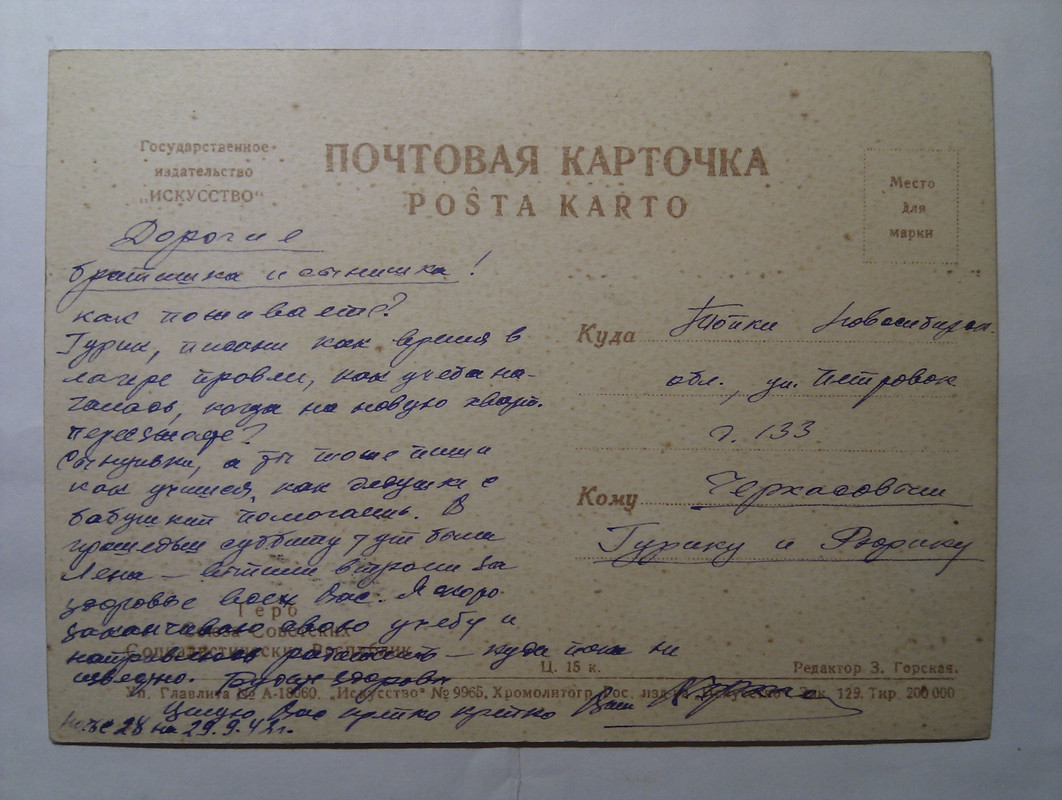 Государственное
издательство
„ИСКУССТВО“
ПОЧТОВАЯ КАРТОЧКА
POŜTA KARTO
Место
для
марки
Дорогие
братишка и сынишка!
как поживаете?
Гурик, пиши как время в
лагере провел, как учеба на-
чалась, когда на новую кварт.
переезжаете?
Сынушка, а ты тоже пиши
как учишься, как дедушке с
бабушкой помогаешь. В
прошедшую субботу тут была
Лена — выпили втроем за
здоровье всех Вас. Я скоро
заканчиваю свою учебу и
направляюсь работать — куда пока не
известно. Будьте здоровы
Целую Вас крепко крепко Ваш
28 на 29.9.42 г.
Куда Топки Новосибирск.
обл., ул. Петровок
д. 133
Кому Черкасовым
Гурику и Рюрику
Герб
Союза Советских
Социалистических Республик
Ц. 15 к.
Редактор З. Горская.
Уп. Главлита № А-18060. „Искусство“ № 9965. Хромолитогр. Гос. изд-ва „Искусство“ Зак. 129. Тир. 200 000